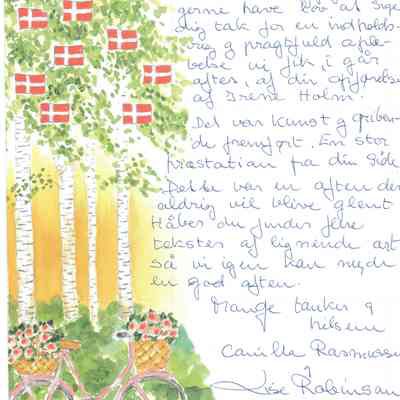 gerne have lov at sige
dig tak for en indholds-
rig og pragtfuld ople-
velse vi fik i går
aftes, af din opførelse
af Irene Holm.
Det var kunst og griben-
de fremført. En stor
præstation fra din side
Dette var en aften der
aldrig vil blive glemt
Håber du finder flere
tekster af lignende art
så vi igen kan nyde
en god aften.
Mange tanker og
hilsen
Camilla Rasmussen
Lise Robinson